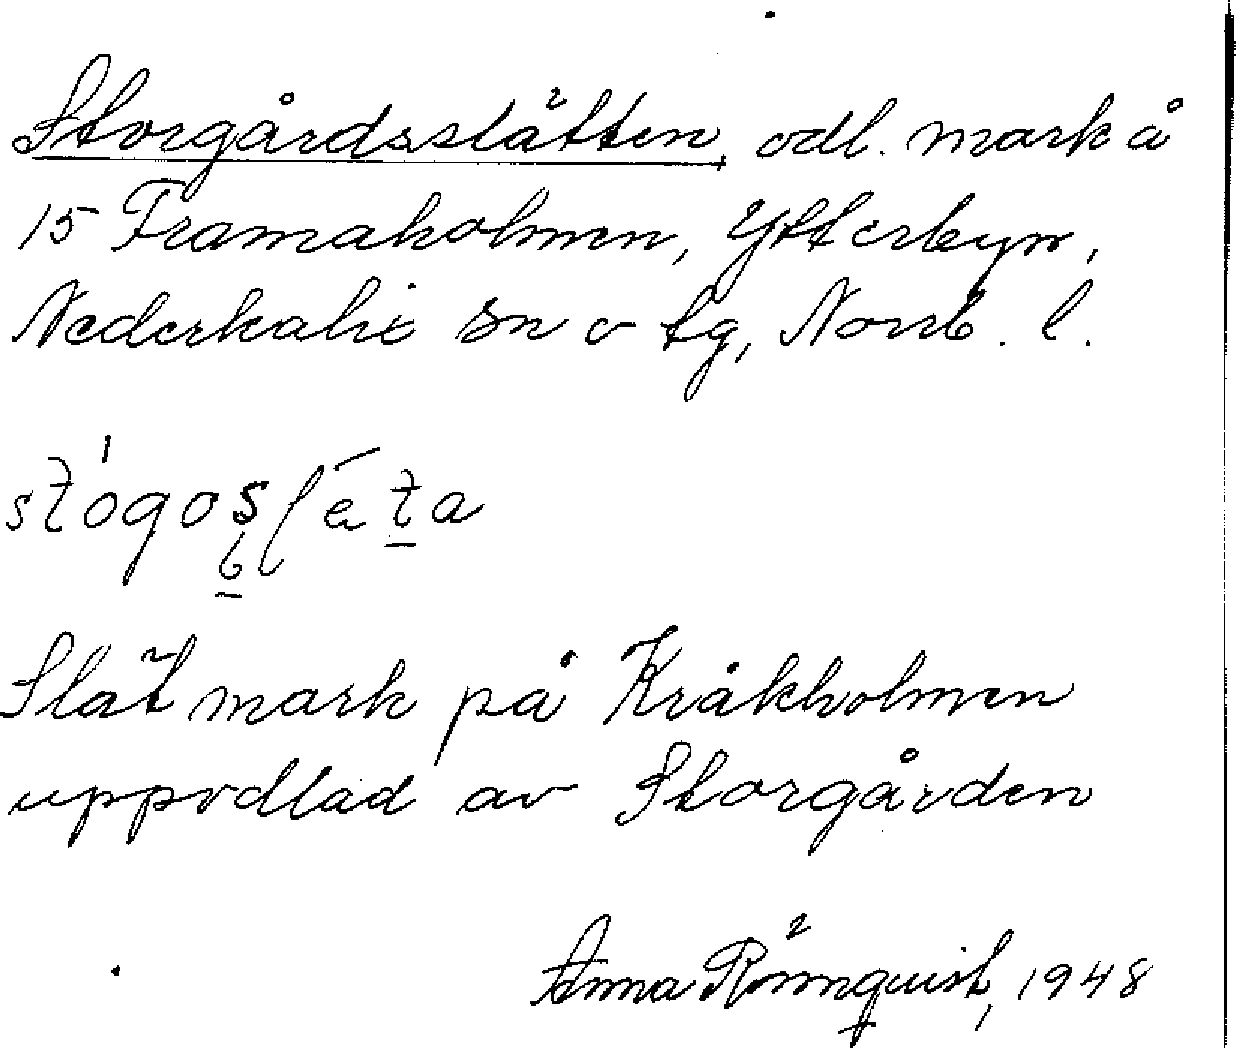 Storgårdsslätten, odl. mark å
15 Framaholmen, Ytterbyn,
Nederkalix sn o tg, Norrb. l.
Slät mark på Kråkholmen
uppodlad av Storgården
Anna Rönnquist, 1948